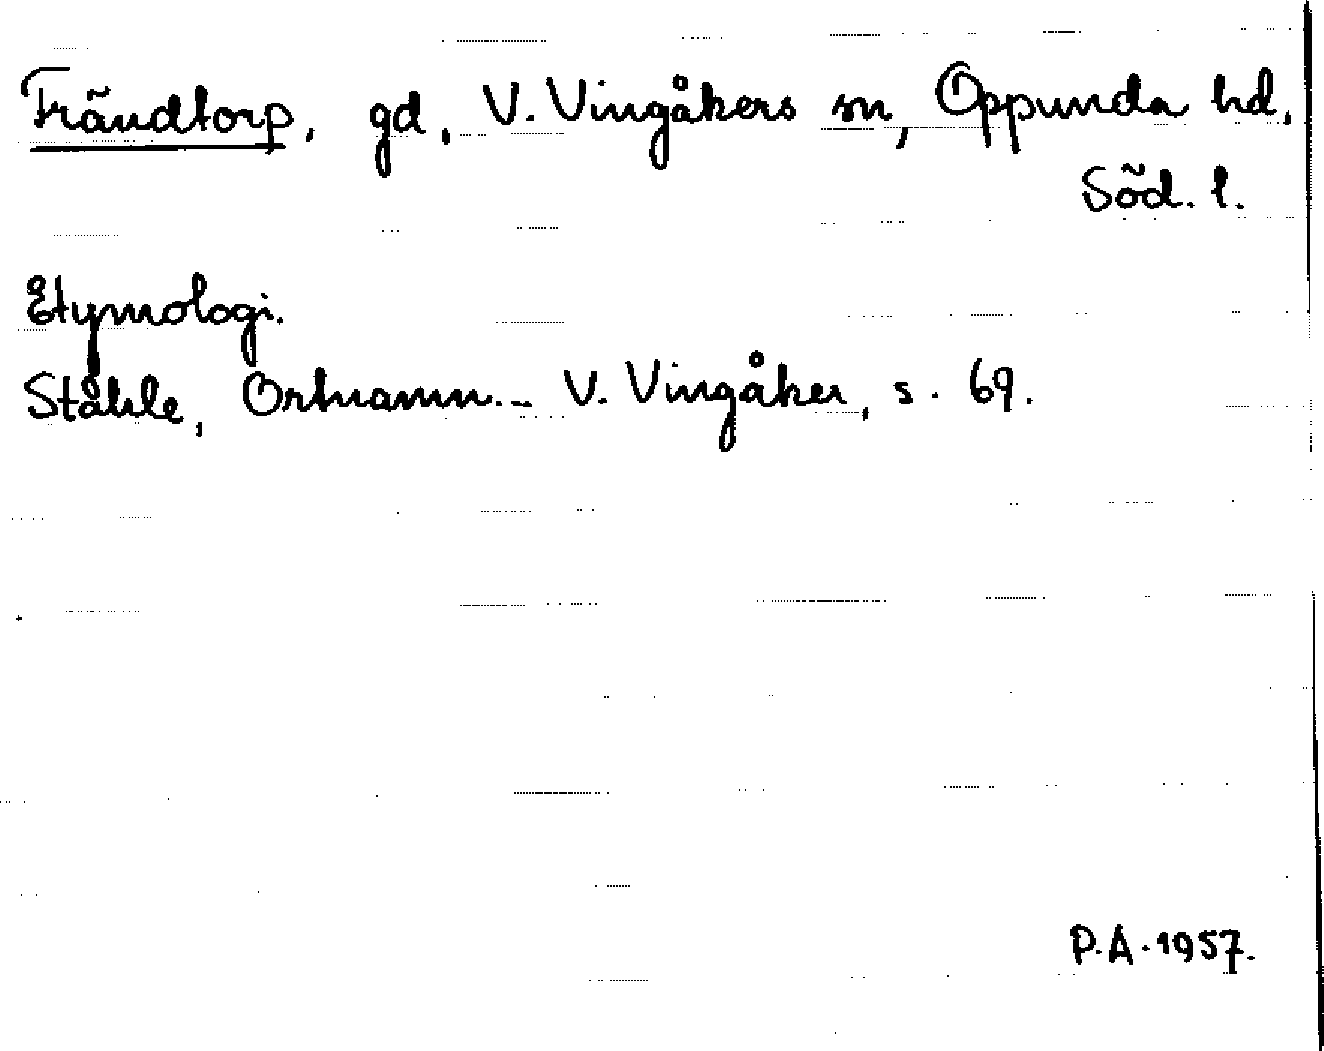 Trändtorp, gd, V. Vingåkers sn, Oppunda hd,
Söd. l.
Etymologi.
Ståhle, Ortnamn.- V. Vingåker, s. 69.
P.A. 1957.